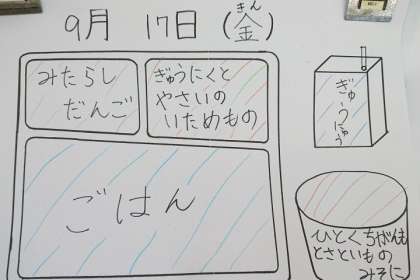 9月 17日 (金)
きん
みたらし
だんご
ぎゅうにくと
やさいの
いためもの
ぎゅうにゅう
ごはん
ひとくちがんも
とさといもの
みそに